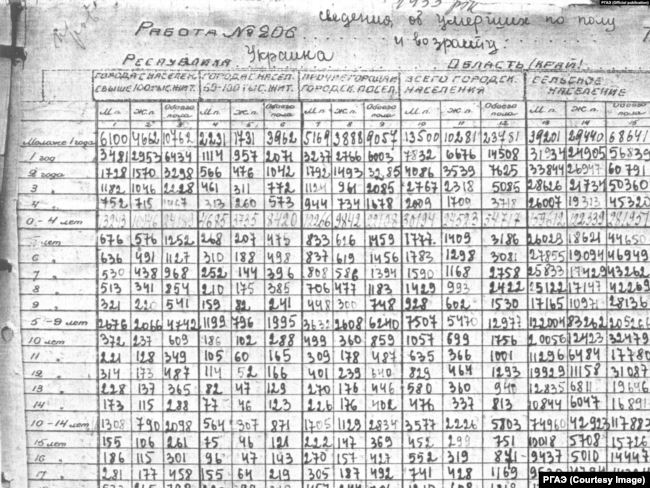 РГАЭ (Official publication)
1933
сведения об умерших по полу
Работа № 206
и возрасту
Украина
Республика Область (край)
Города с населен. свыше 100 тыс. жит. Города с насел. 50-100 тыс. жит. Прочие города и городск. посел. Всего городск. населения Сельское население
М.п. Ж.п. Обоего пола М.п. Ж.п. Обоего пола М.п. Ж.п. Обоего пола М.п. Ж.п. Обоего пола М.п. Ж.п. Обоего пола
Моложе 1 года 6100 4662 10762 2231 1731 3962 5169 3888 9057 13500 10281 23781 39201 29440 68641
1 год 3481 2953 6434 1114 957 2071 3237 2766 6003 7832 6676 14508 31934 24905 56839
2 года 1728 1570 3298 566 476 1042 1792 1493 3285 4086 3539 7625 33844 26947 60791
3 1182 1046 2228 461 311 772 1124 961 2085 2767 2318 5085 28626 21734 50360
4 752 715 313 260 573 944 734 1678 2009 1709 3718 26007 19313 45320
0-4 лет
лет 676 576 1252 268 207 475 833 626 1459 1777 1409 3186 26029 18621 44650
6 636 491 1127 310 188 498 837 619 1456 1783 1298 3081 27855 19094 46949
7 530 438 968 252 144 396 808 586 1394 1590 1168 2758 25833 17429 43262
8 513 341 854 210 175 385 706 477 1183 1429 993 2422 25122 17147 42269
9 321 220 541 159 82 241 448 300 748 928 602 1530 17165 10971 28136
5-9 лет 2676 2066 4742 1199 796 1995 3632 2608 6240 7507 5470 12977 122004 83262 205266
10 лет 372 237 609 186 102 288 499 360 859 1057 699 1756 20056 12423 32479
11 221 128 349 105 60 165 309 178 487 635 366 1001 11296 6484 17780
12 314 173 487 114 52 166 401 239 640 829 464 1293 19929 11158 31087
13 228 137 365 82 47 129 270 176 446 580 360 940 12835 6811 19646
14 173 115 288 77 46 123 226 176 402 476 337 813 10844 6047 16891
10-14 лет 1308 790 2098 564 307 871 1705 1129 2834 3577 2226 5803 74960 42923 117883
15 лет 155 106 261 75 46 121 222 147 369 452 299 751 10018 5708 15726
16 186 115 301 96 47 143 270 157 427 552 319 871 9437 5010 14447
17 281 177 458 155 64 219 305 187 492 741 428 1169
РГАЭ (Courtesy Image)